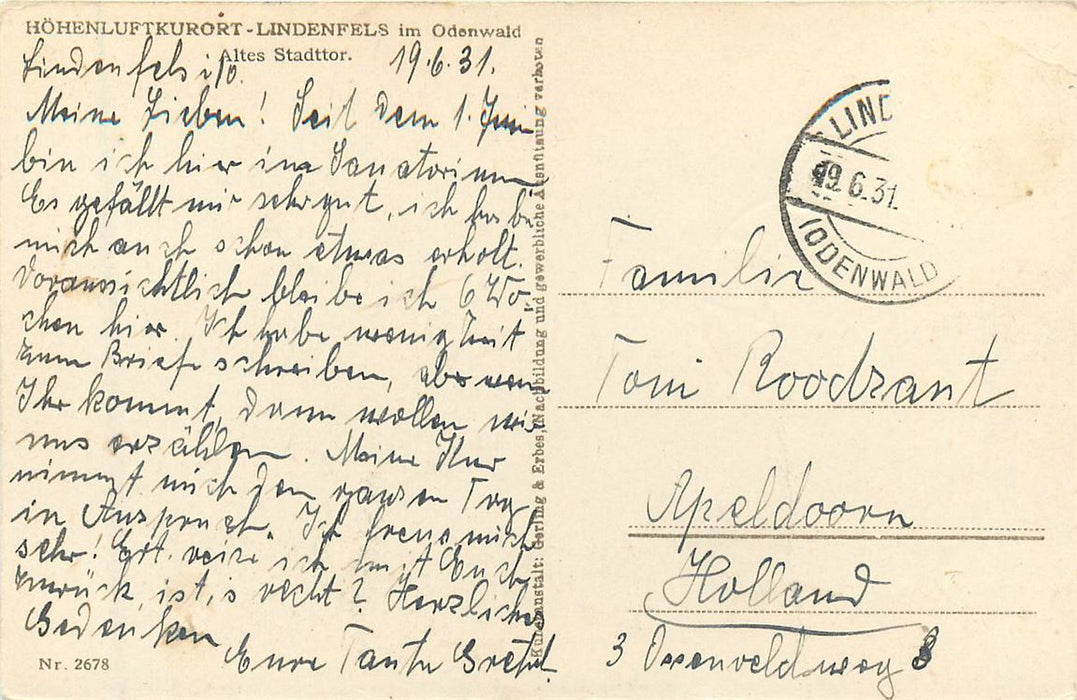 HÖHENLUFTKURORT - LINDENFELS im Odenwald
Altes Stadttor.
Lindenfels i/O. 19.6.31.
Meine Lieben! Seit dem 1. Juni
bin ich hier im Sanatorium
Es gefällt mir sehr gut, ich habe
mich auch schon etwas erholt.
Voraussichtlich bleibe ich 6 Wo-
chen hier. Ich habe wenig Zeit
zum Briefe schreiben, aber wenn
Ihr kommt, dann wollen wir
uns erzählen. Meine Kur
nimmt mich den ganzen Tag
in Anspruch. Ich freue mich
sehr! Evt. reise ich mit Euch
zurück, ist's recht? Herzliche
Gedenken
Eure Tante Gretel.
Nr. 2678
Kunstanstalt: Gerling & Erbes, (Nachbildung und gewerbliche Ausnützung verboten
LIND
19.6.31.
(ODENWALD
Familie
Toni Roodzant
Apeldoorn
Holland
3 Ossenveldweg 3